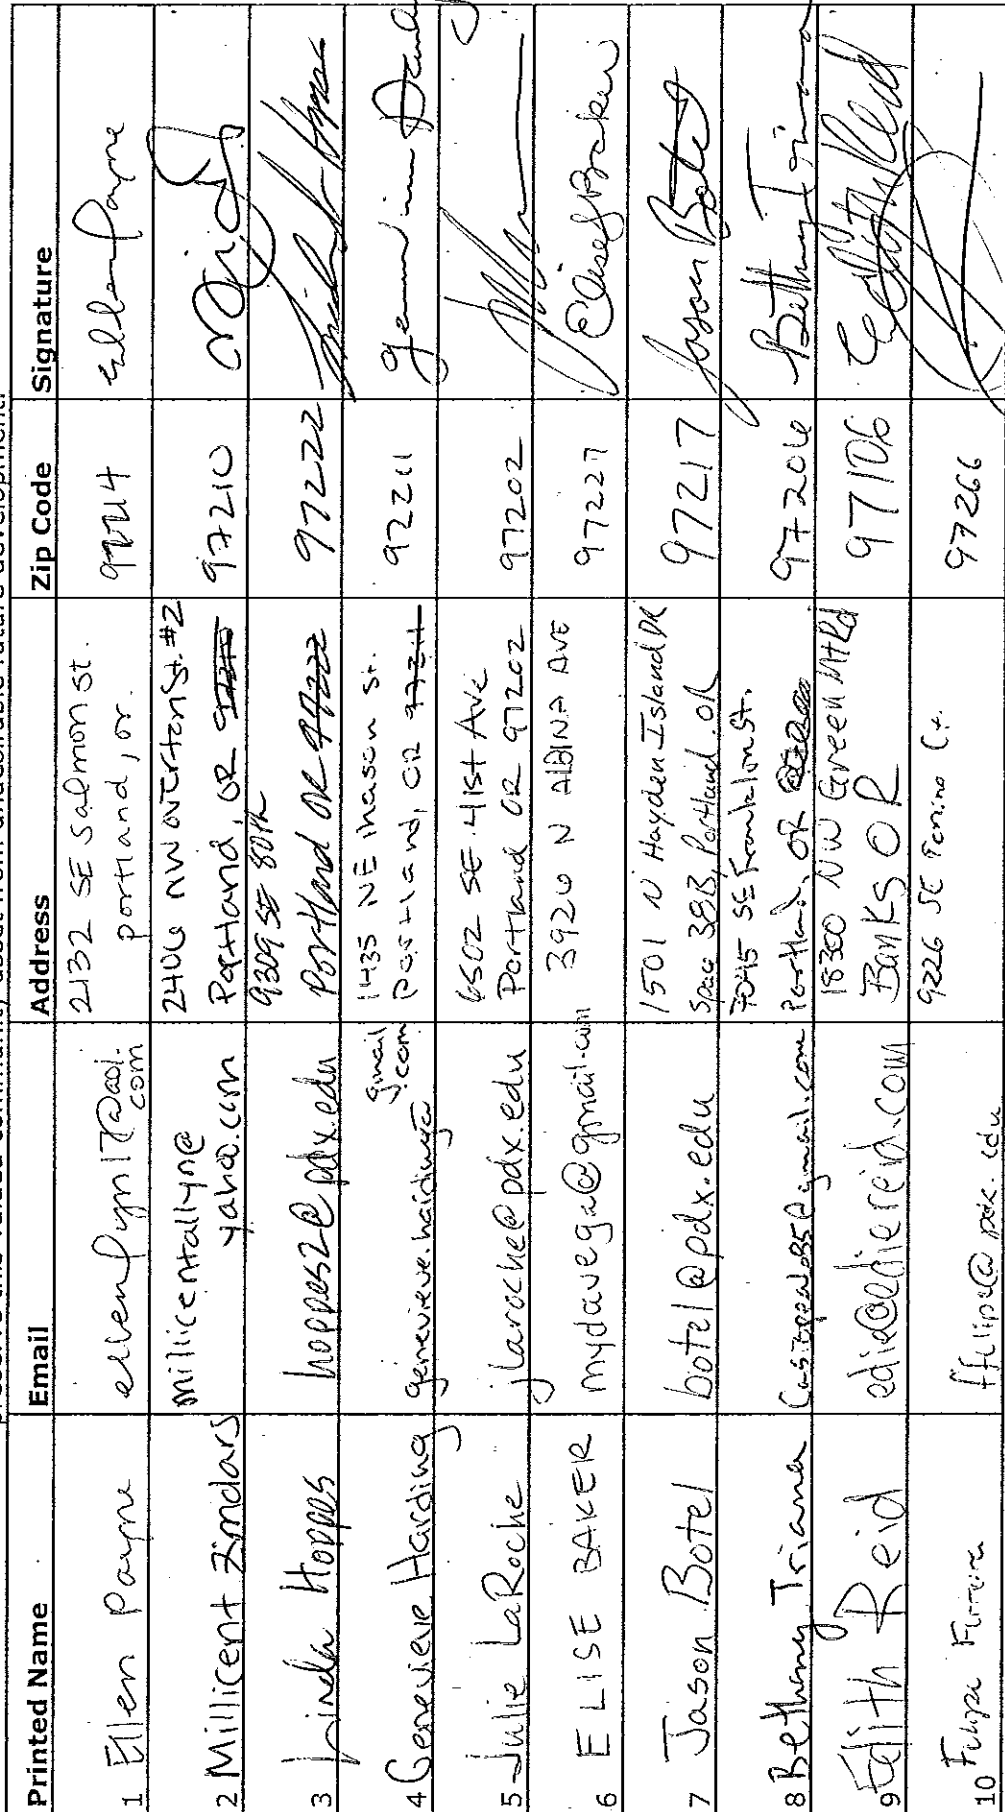 preserve this valued community asset from undesirable future development.
Printed Name Email Address Zip Code Signature
1 Ellen Payne ellenpyn17@aol.com 2132 SE Salmon st. portland, or. 97214 Ellen Payne
2 Millicent Zimdars millicentallyn@yahoo.com 2406 NW Overton St. #2 Portland, OR 97210 97210
3 Linda Hoppes hoppes2@pdx.edu 9309 SE 80th Portland OR 97222 97222
4 Genevieve Harding genevieve.harding@gmail.com 1435 NE mason st. portland, OR 97211 97211
5 Julie LaRoche jlaroche@pdx.edu 6502 SE 41st Ave Portland OR 97202 97202
6 ELISE BAKER mydavega@gmail.com 3926 N ALBINA AVE 97227 Elise Baker
7 Jason Botel botel@pdx.edu 1501 N Hayden Island DR Space 38B, Portland, OR 97217 Jason Botel
8 Bethany Triana 7045 SE Franklin St. Portland, OR 97206 Bethany Triana
9 Edith Reid edie@ediereid.com 18300 NW Green Mt Rd Banks OR 97106 Edith Reid
10 Filipe ffilipe@pdx.edu 9226 SE Ct. 97266